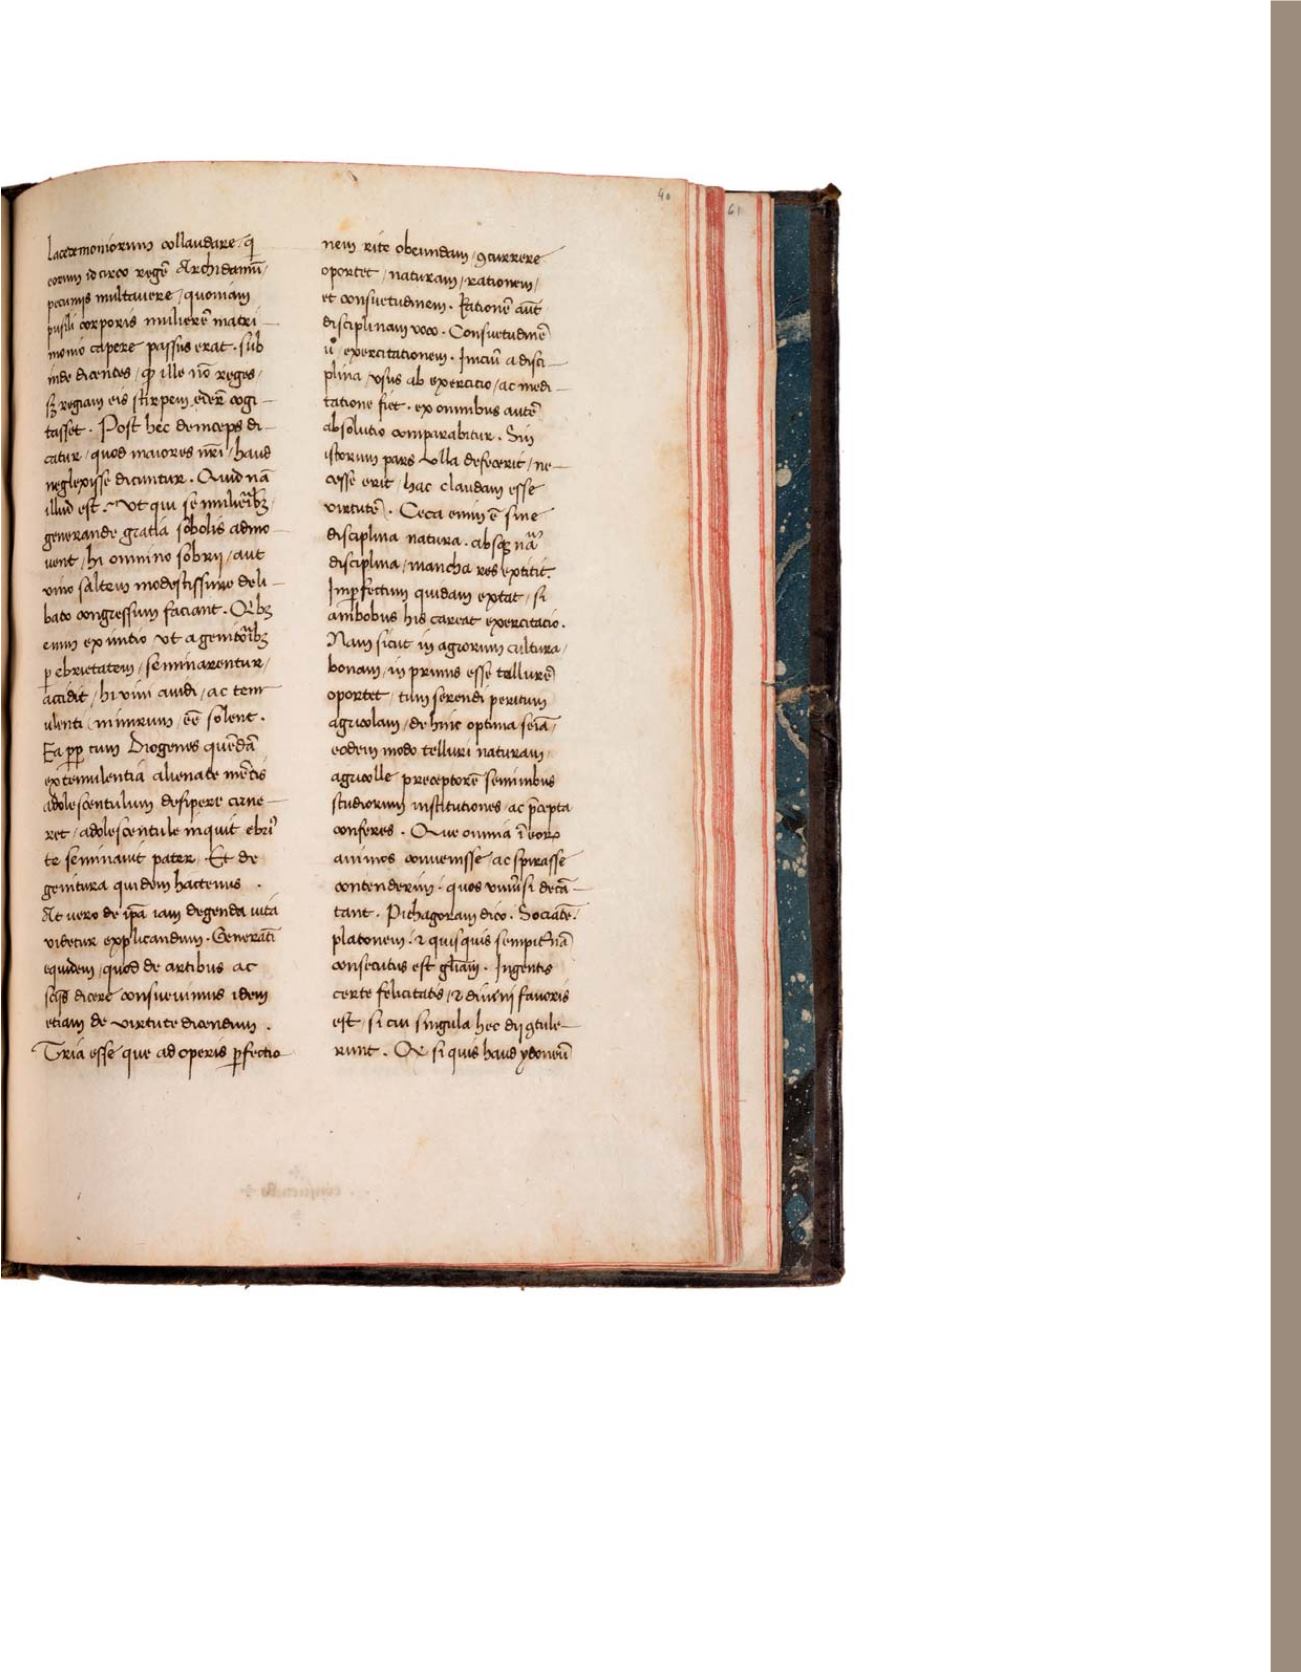 40
61
lacedemoniorum collaudare. q̄
eorum idcirco regē Archidamū/
pecunijs multavere / quoniam
pusili corporis mulierē matri
monio capere passus erat. sub
inde dicentes / ꝙ ille nō reges /
sꝫ regiam eis stirpem edere cogi
tasset. Post hec deinceps di
catur / quod maiores nr̄i / haud
neglexisse dicuntur. Quid nā
illud est. Vt qui se mulieribꝫ
generande gratia sobolis admo
uent / hi omnino sobrij / aut
vino saltem modestissime deli
bato congressum faciant. Qbꝫ
enim ex initio vt a genitoribꝫ
ꝑ ebrietatem / seminarentur /
accidit / hi vini auidi / ac tem
ulenti nimirum / eē solent.
Ea ꝓp cum Diogenes quēdā
ex temulentia alienate mētis
adolescentulum desipere cerne
ret / adolescentule inquit ebriꝰ
te seminauit pater. Et de
genitura quidem hactenus.
At vero de ip̄a iam degenda uita
videtur explicandum. Generatī
equidem / quod de artibus ac
scijs dicere consueuimus idem
etiam de virtute dicendum.
Tria esse que ad operis ꝑfectio
nem rite obeundam / ꝯcurrere
oportet / naturam / rationem /
et consuetudinem. Rationē aūt
disciplinam voco. Consuetudinē
uͦ / exercitationem. Iniciū a disci
plina / vsus ab exercicio / ac medi
tatione fiet. ex omnibus autē
absolutio comparabitur. Sin
istorum pars vlla defecerit / ne
cesse erit / hac claudam esse
virtutē. Ceca enim ē sine
disciplina natura. absqꝫ nāᵃ
disciplina / mancha res extitit.
Imꝑfectum quidam extat / si
ambobus his careat exercitacio.
Nam sicut in agrorum cultura /
bonam / in primis esse tellurē
oportet / tum serendi peritum
agricolam / de hinc optima seīa /
eodem modo telluri naturam
agricolle preceptorē seminibus
studiorum institutiones ac p̄cepta
conferes. Que omnia ī eoꝝ
animos conuenisse / ac spirasse
contenderim / quos vniūsi decā
tant. Pithagoram dico. Socratē.
platonem. ⁊ quisquis sempit̄nā
consecutus est gl̄iam. Ingentis
certe felicitatis / ⁊ diuini fauoris
est / si cui singula hec dij ꝯtule
runt. Qr si quis haud ydoneū